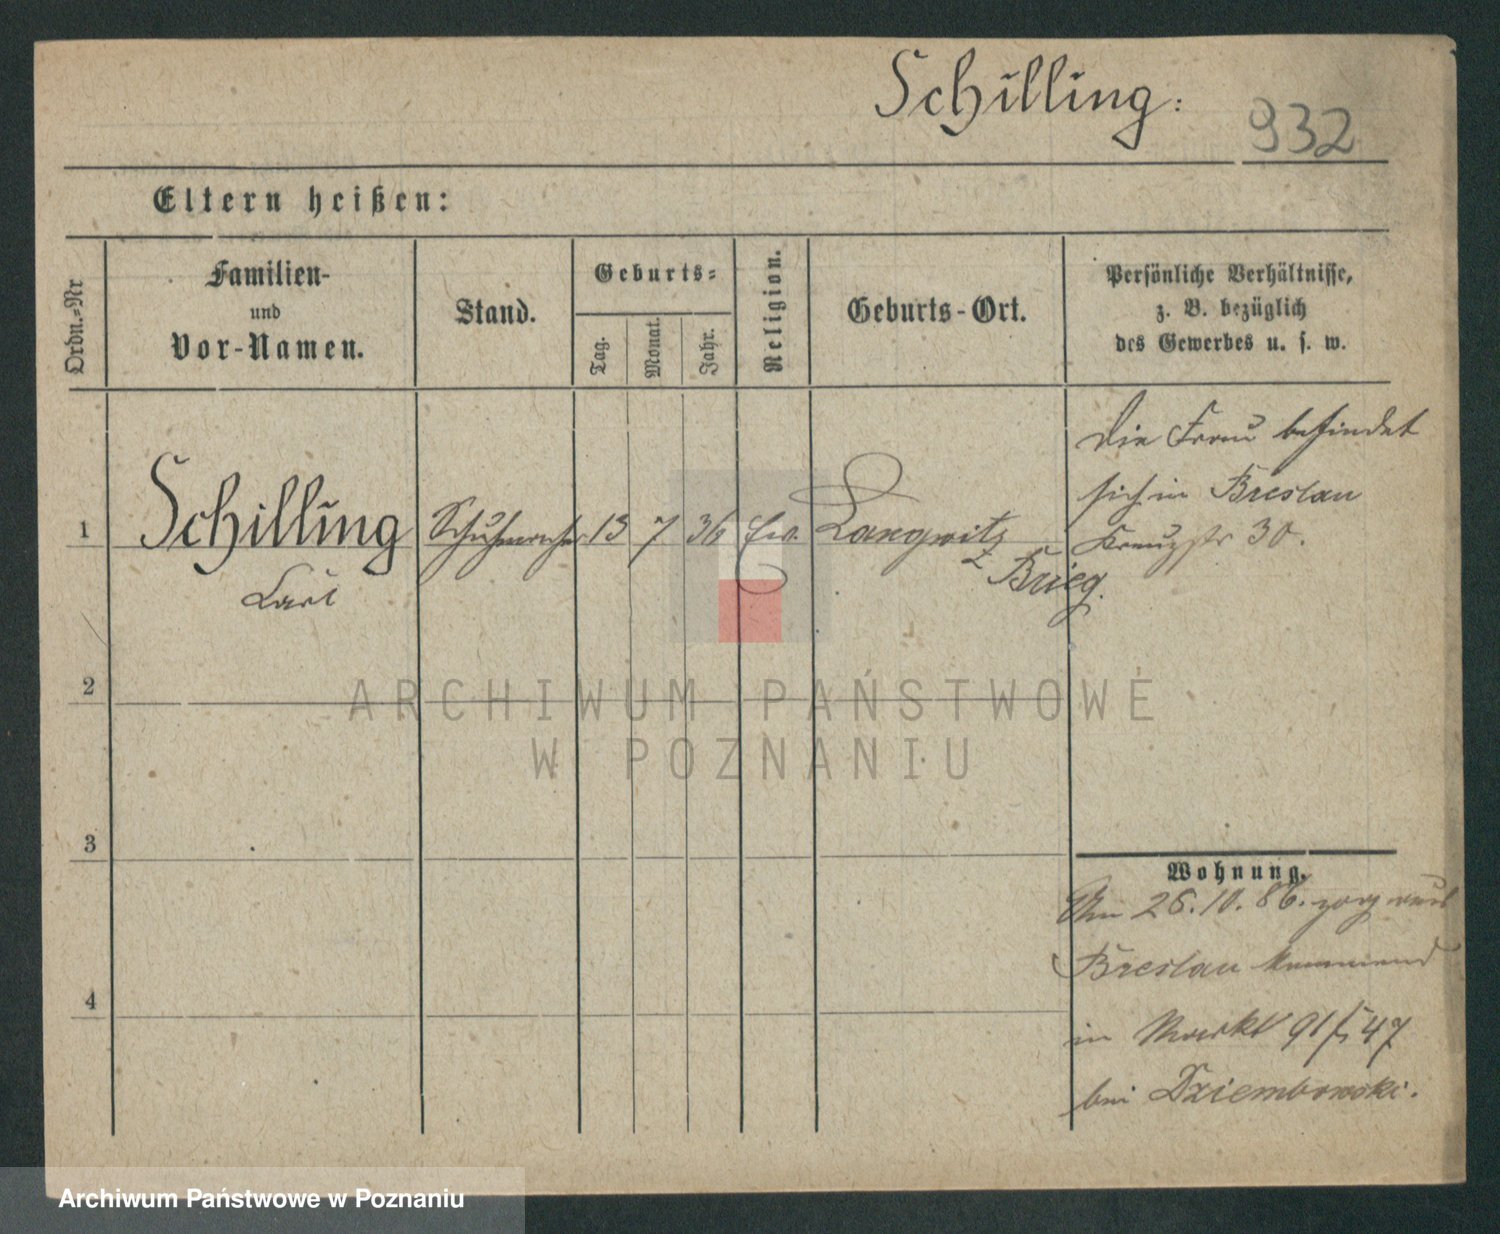 Schilling:
932
Eltern heißen:
Ordn.-Nr
Familien-
und
Vor-Namen.
Stand.
Geburts-
Tag.
Monat.
Jahr.
Religion.
Geburts-Ort.
Persönliche Verhältnisse,
z. B. bezüglich
des Gewerbes u. s. w.
Die Frau befindet
sich in Breslau
Kreuzstr 30.
1 Schilling Schuhmacher 13 7 36 Ev. Langwitz
Brieg.
Carl
2
ARCHIWUM PAŃSTWOWE
W POZNANIU
3
Wohnung.
Am 26.10.86. zog aus
Breslau kommend
in Markt 91 47
bei Dziembowski.
4
Archiwum Państwowe w Poznaniu